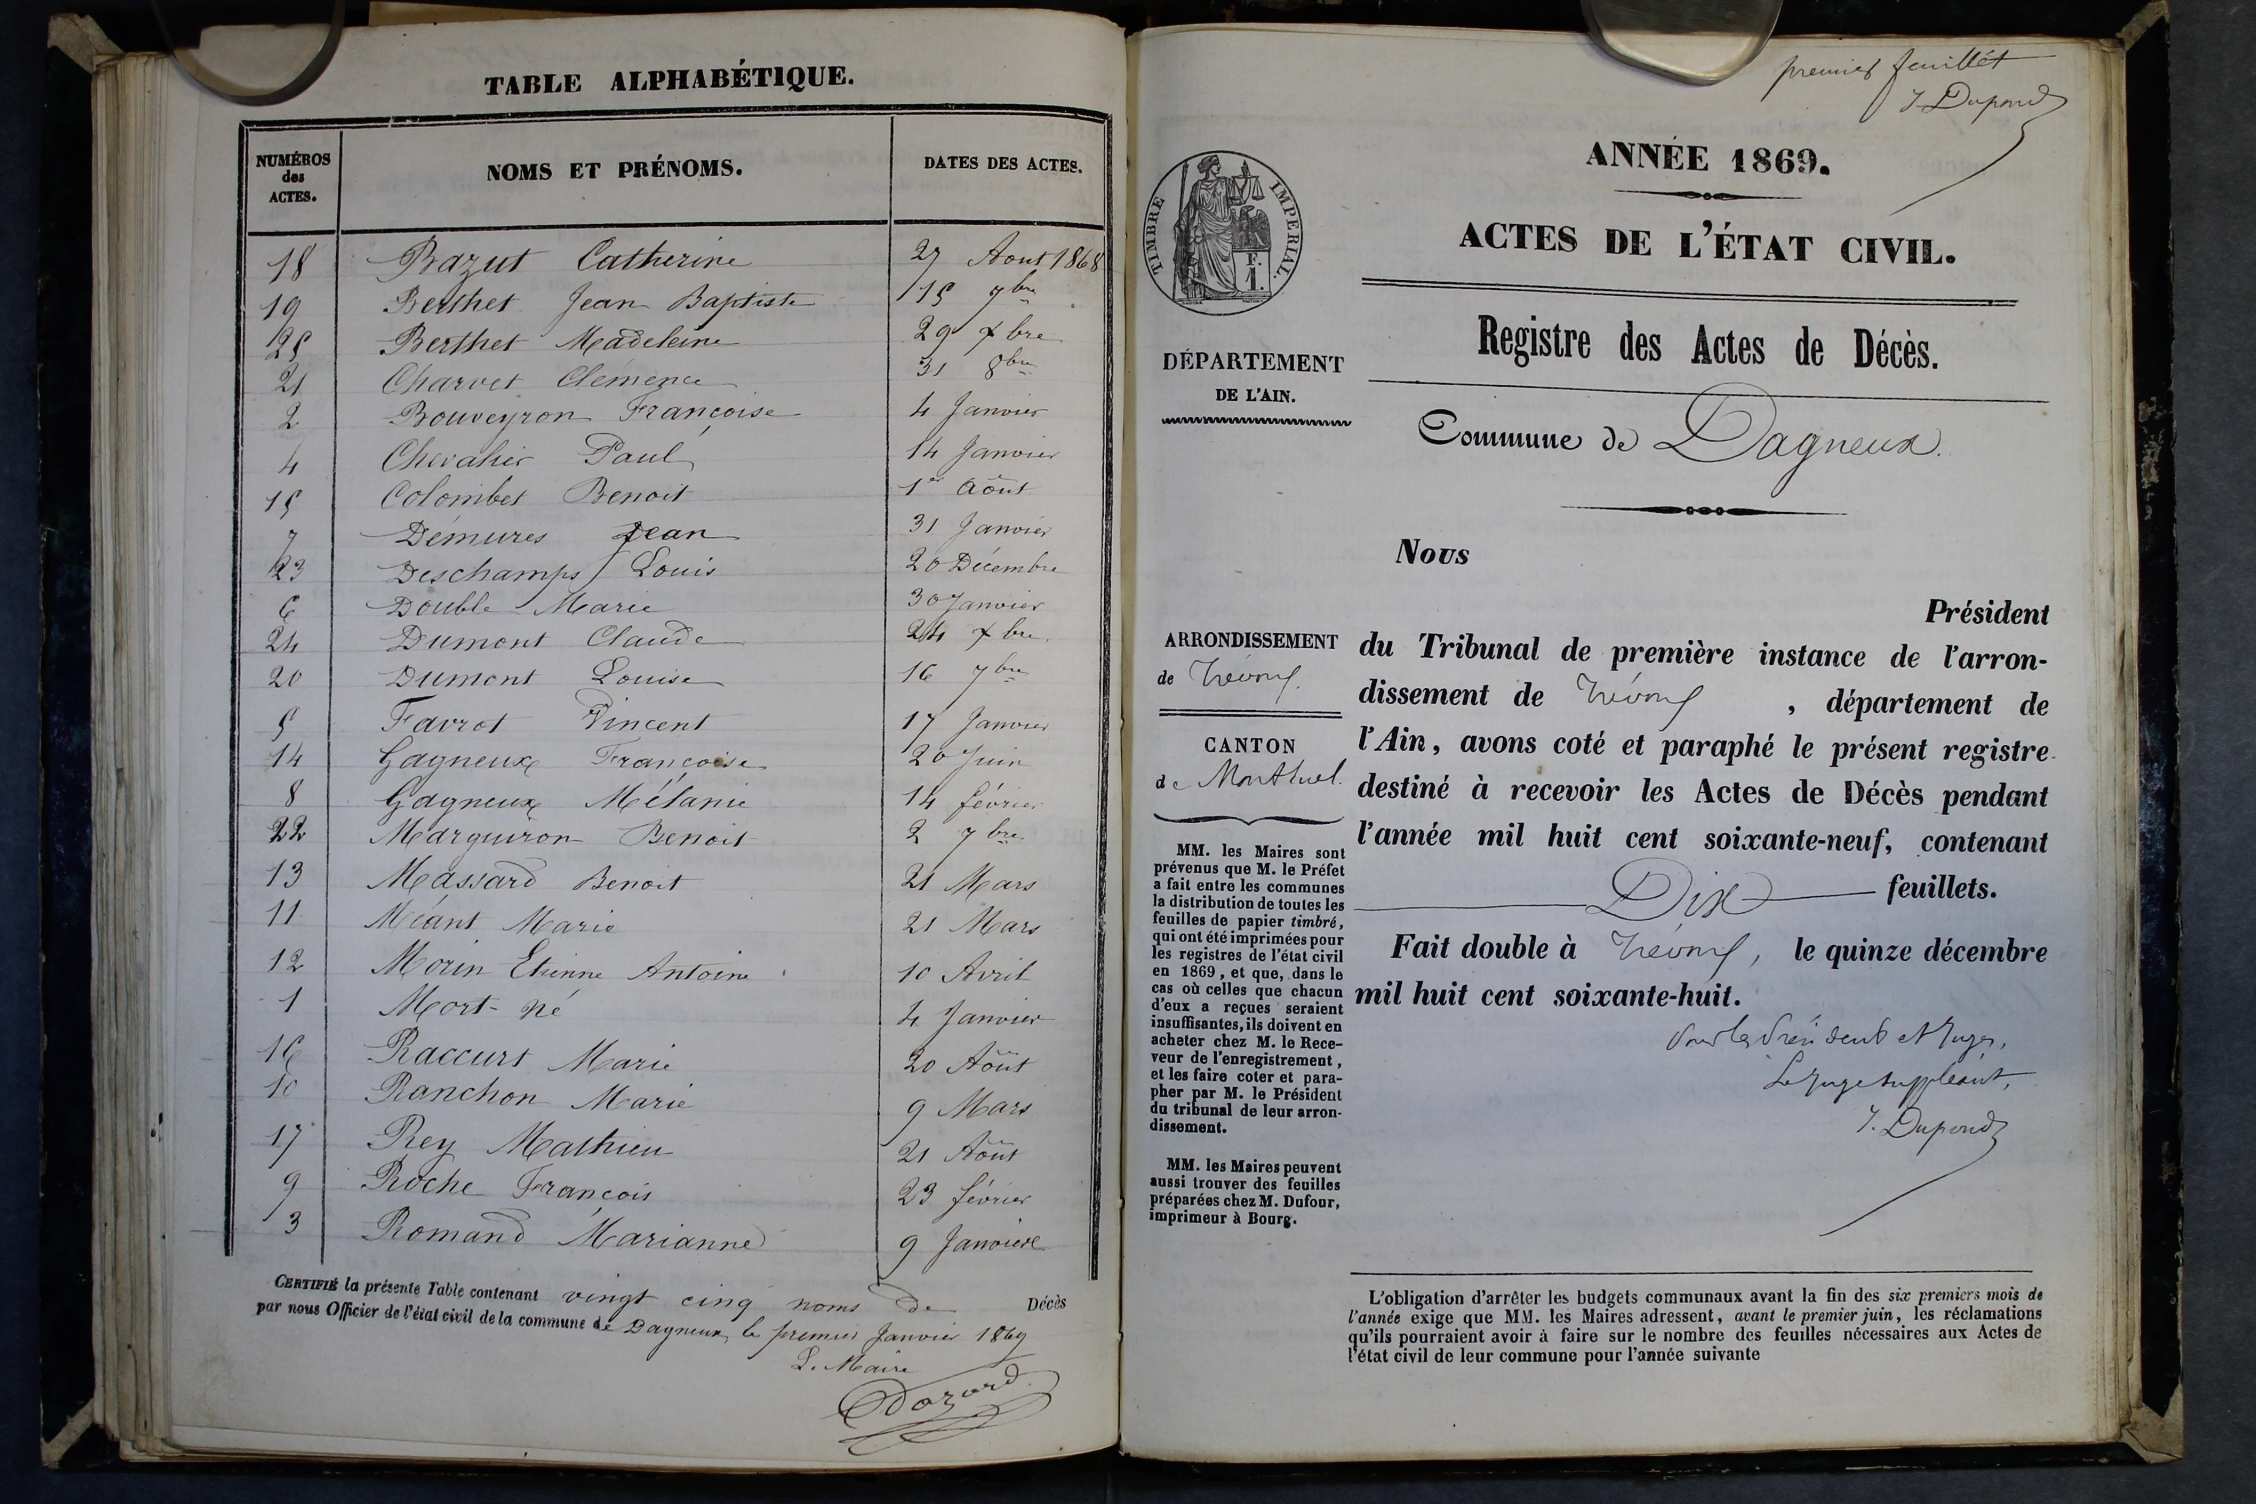 TABLE ALPHABÉTIQUE.
NUMÉROS des ACTES. NOMS ET PRÉNOMS. DATES DES ACTES.
18 Bazut Catherine 27 Aout 1868
19 Berthet Jean Baptiste 15 7bre
25 Berthet Madeleine 29 Xbre
21 Charvet Clémence 31 8bre
2 Bouveyron Françoise 4 Janvier
4 Chevalier Paul 14 Janvier
15 Colombet Benoit 1er Août
7 Démures Jean 31 Janvier
23 Deschamps Louis 20 Décembre
6 Double Marie 30 Janvier
24 Dumont Claude 24 Xbre.
20 Dumont Louise 16 7bre
5 Favrot Vincent 17 Janvier
14 Gagneux Françoise 20 Juin
8 Gagneux Mélanie 14 février
22 Marguiron Benoit 2 7bre
13 Massard Benoit 21 Mars
11 Méant Marie 21 Mars
12 Morin Etienne Antoine 10 Avril
1 Mort-né 4 Janvier
16 Raccurt Marie 20 Août
10 Ranchon Marie 9 Mars
17 Rey Mathieu 21 Août
9 Roche François 23 février
3 Romand Marianne 9 Janvier
CERTIFIÉ la présente Table contenant vingt cinq noms de Décès
par nous Officier de l'état civil de la commune de Dagneux, le premier Janvier 1869
Le Maire
premier feuillet
J. Dupond
ANNÉE 1869.
ACTES DE L'ÉTAT CIVIL.
TIMBRE IMPÉRIAL.
F.
1.
Registre des Actes de Décès.
DÉPARTEMENT
DE L'AIN.
Commune de Dagneux.
Nous
Président
du Tribunal de première instance de l'arron-
dissement de Trévoux, département de
l'Ain, avons coté et paraphé le présent registre
destiné à recevoir les Actes de Décès pendant
l'année mil huit cent soixante-neuf, contenant
Dix feuillets.
Fait double à Trévoux, le quinze décembre
mil huit cent soixante-huit.
Le Juge suppléant,
J. Dupond
ARRONDISSEMENT
de Trévoux.
CANTON
de Montluel.
MM. les Maires sont
prévenus que M. le Préfet
a fait entre les communes
la distribution de toutes les
feuilles de papier timbré,
qui ont été imprimées pour
les registres de l'état civil
en 1869, et que, dans le
cas où celles que chacun
d'eux a reçues seraient
insuffisantes, ils doivent en
acheter chez M. le Rece-
veur de l'enregistrement,
et les faire coter et para-
pher par M. le Président
du tribunal de leur arron-
dissement.
MM. les Maires peuvent
aussi trouver des feuilles
préparées chez M. Dufour,
imprimeur à Bourg.
L'obligation d'arrêter les budgets communaux avant la fin des six premiers mois de
l'année exige que MM. les Maires adressent, avant le premier juin, les réclamations
qu'ils pourraient avoir à faire sur le nombre des feuilles nécessaires aux Actes de
l'état civil de leur commune pour l'année suivante